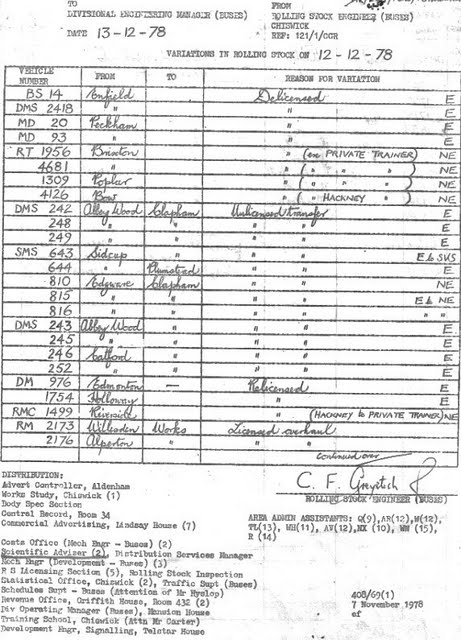 TO FROM
DIVISIONAL ENGINEERING MANAGER (BUSES) ROLLING STOCK ENGINEER (BUSES)
CHISWICK
DATE 13-12-78 REF: 121/1/CGR
VARIATIONS IN ROLLING STOCK ON 12-12-78
VEHICLE NUMBER FROM TO REASON FOR VARIATION
BS 14 Enfield Delicensed E
DMS 2418 " " E
MD 20 Peckham " E
MD 93 " " E
RT 1956 Brixton " (on PRIVATE TRAINER) NE
4681 " " ( " " " ) NE
1309 Poplar " ( " " " ) NE
4126 Bow " ( " HACKNEY " ) NE
DMS 242 Abbey Wood Clapham Unlicensed transfer E
248 " " " " E
249 " " " " E
SMS 643 Sidcup " " " E to SWS
644 " Plumstead " " E
810 Edgware Clapham " " NE
815 " " " " E to NE
816 " " " " " "
DMS 243 Abbey Wood " " " E
245 " " " " E
246 Catford " " " E
252 " " " " E
DM 976 Edmonton — Relicensed E
1754 Holloway " E
RMC 1499 Riverside " (HACKNEY to PRIVATE TRAINER) NE
RM 2173 Willesden Works Licensed overhaul
2176 Alperton " " "
continued over
DISTRIBUTION:
Advert Controller, Aldenham
Works Study, Chiswick (1)
Body Spec Section
Central Record, Room 34
Commercial Advertising, Lindsay House (7)
C. F.
ROLLING STOCK ENGINEER (BUSES)
AREA ADMIN ASSISTANTS: Q(9), AR(12), W(12),
TL(13), WH(11), AV(12), NX (10), WN (15),
R (14)
Costs Office (Mech Engr - Buses) (2)
Scientific Adviser (2), Distribution Services Manager
Mech Engr (Development - Buses) (3)
R S Licensing Section (5), Rolling Stock Inspection
Statistical Office, Chiswick (2), Traffic Supt (Buses)
Schedules Supt - Buses (Attention of Mr Hyslop)
Revenue Office, Griffith House, Room 432 (2)
Div Operating Manager (Buses), Mansion House
Training School, Chiswick (Attn Mr Carter)
Development Engr, Signalling, Telstar House
408/69(1)
7 November 1978